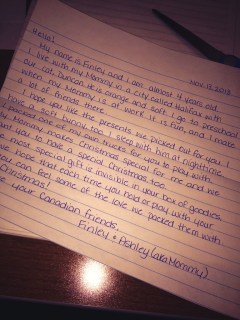 Nov. 13, 2012
Hello!
My name is Finley and I am almost 4 years old.
I live with my Mommy in a city called Halifax with
our cat, Duncan. He is orange and soft. I go to preschool
when my Mommy is at work. It is fun, and I make
a lot of friends there.
I hope you like the presents we picked out for you. I
have a soft bunny too. I sleep with him at nighttime.
I packed one of my own trucks for you to play with
My Mommy makes Christmas special for me and we
want you to have a special Christmas too.
The most special gift is invisible in your box of goodies.
We hope that each time you hold or play with your
you can feel some of the love we packed them with
Christmas!
Your Canadian friends,
Finley & Ashley (aka Mommy)